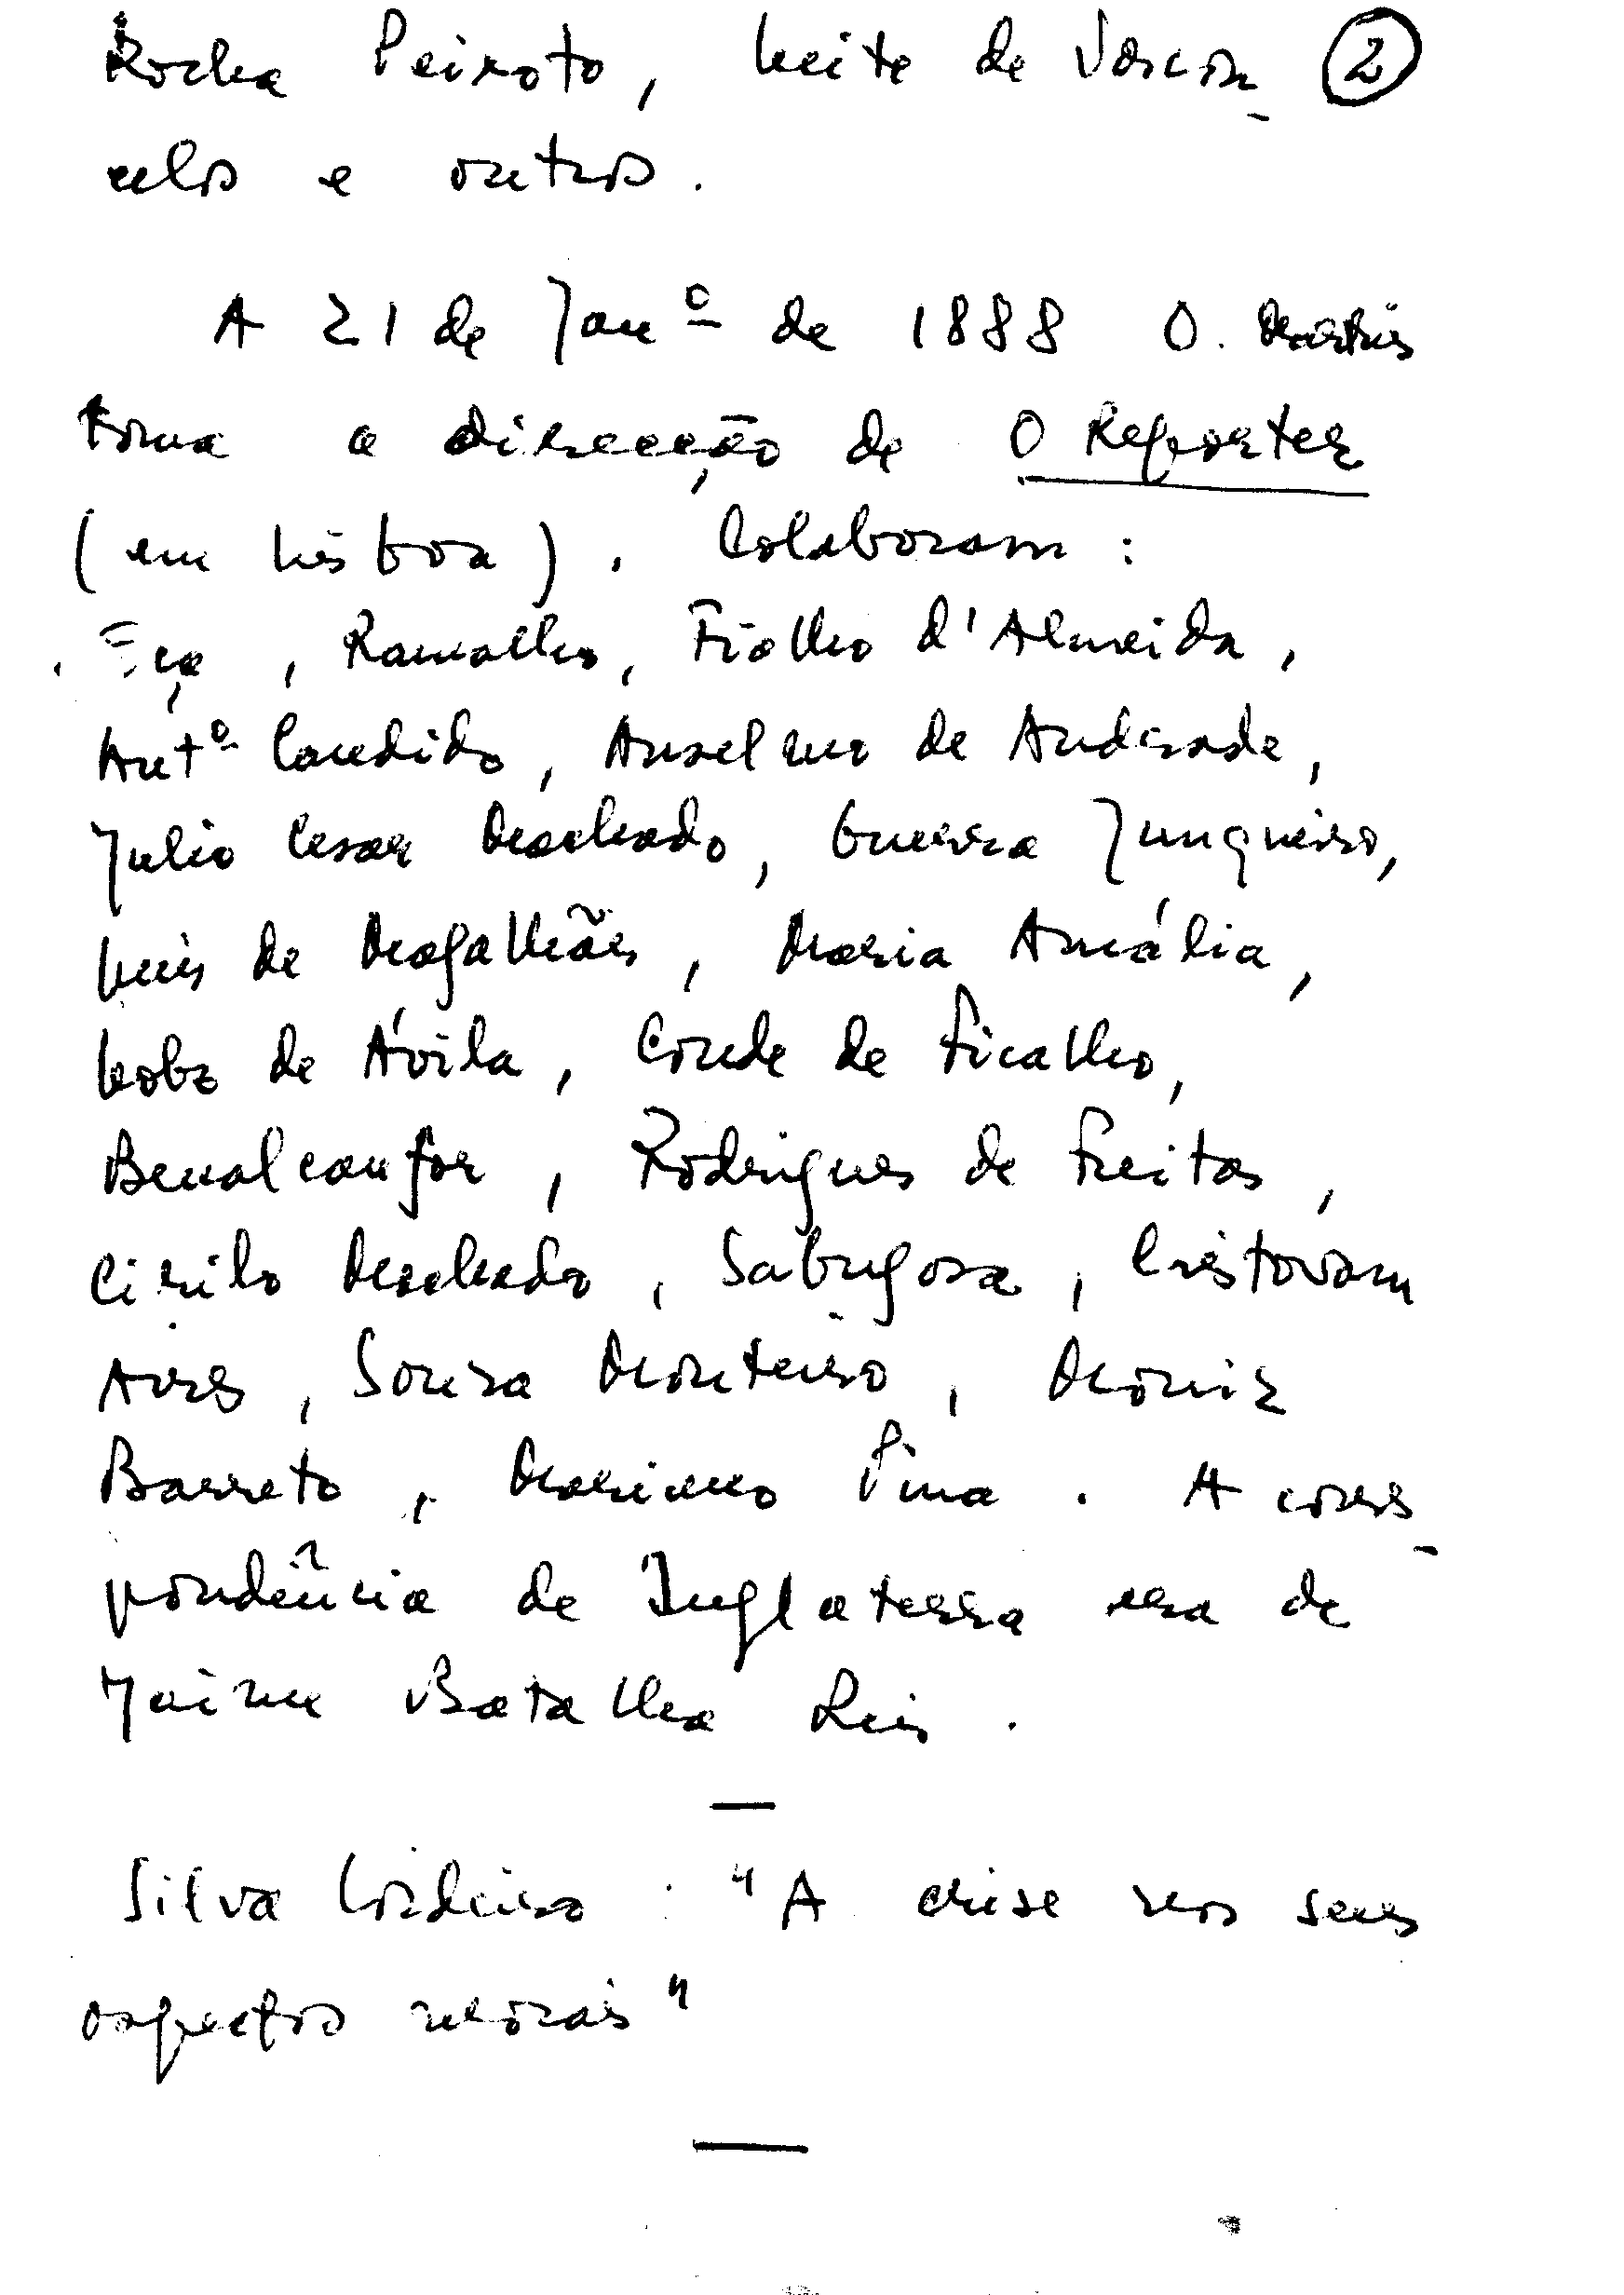 Rocha Peixoto, Leite de Vascon- 2
celos e outros.
A 21 de Janº de 1888 O. Martins
toma a direcção de O Reporter
(em Lisboa). Colaboram:
Eça, Ramalho, Fialho d'Almeida,
Antº Candido, Anselmo de Andrade,
Julio Cesar Machado, Guerra Junqueiro,
Luis de Magalhães, Maria Amália,
Lobo de Ávila, Conde de Ficalho,
Benalcanfor, Rodrigues de Freitas,
Cirilo Machado, Sabugosa, Cristovam
Aires, Sousa Monteiro, Moniz
Barreto, Mariano Pina. A corres-
pondência de Inglaterra era de
Jaime Batalha Reis.
Silva Cordeiro: "A crise nos seus
aspectos morais"